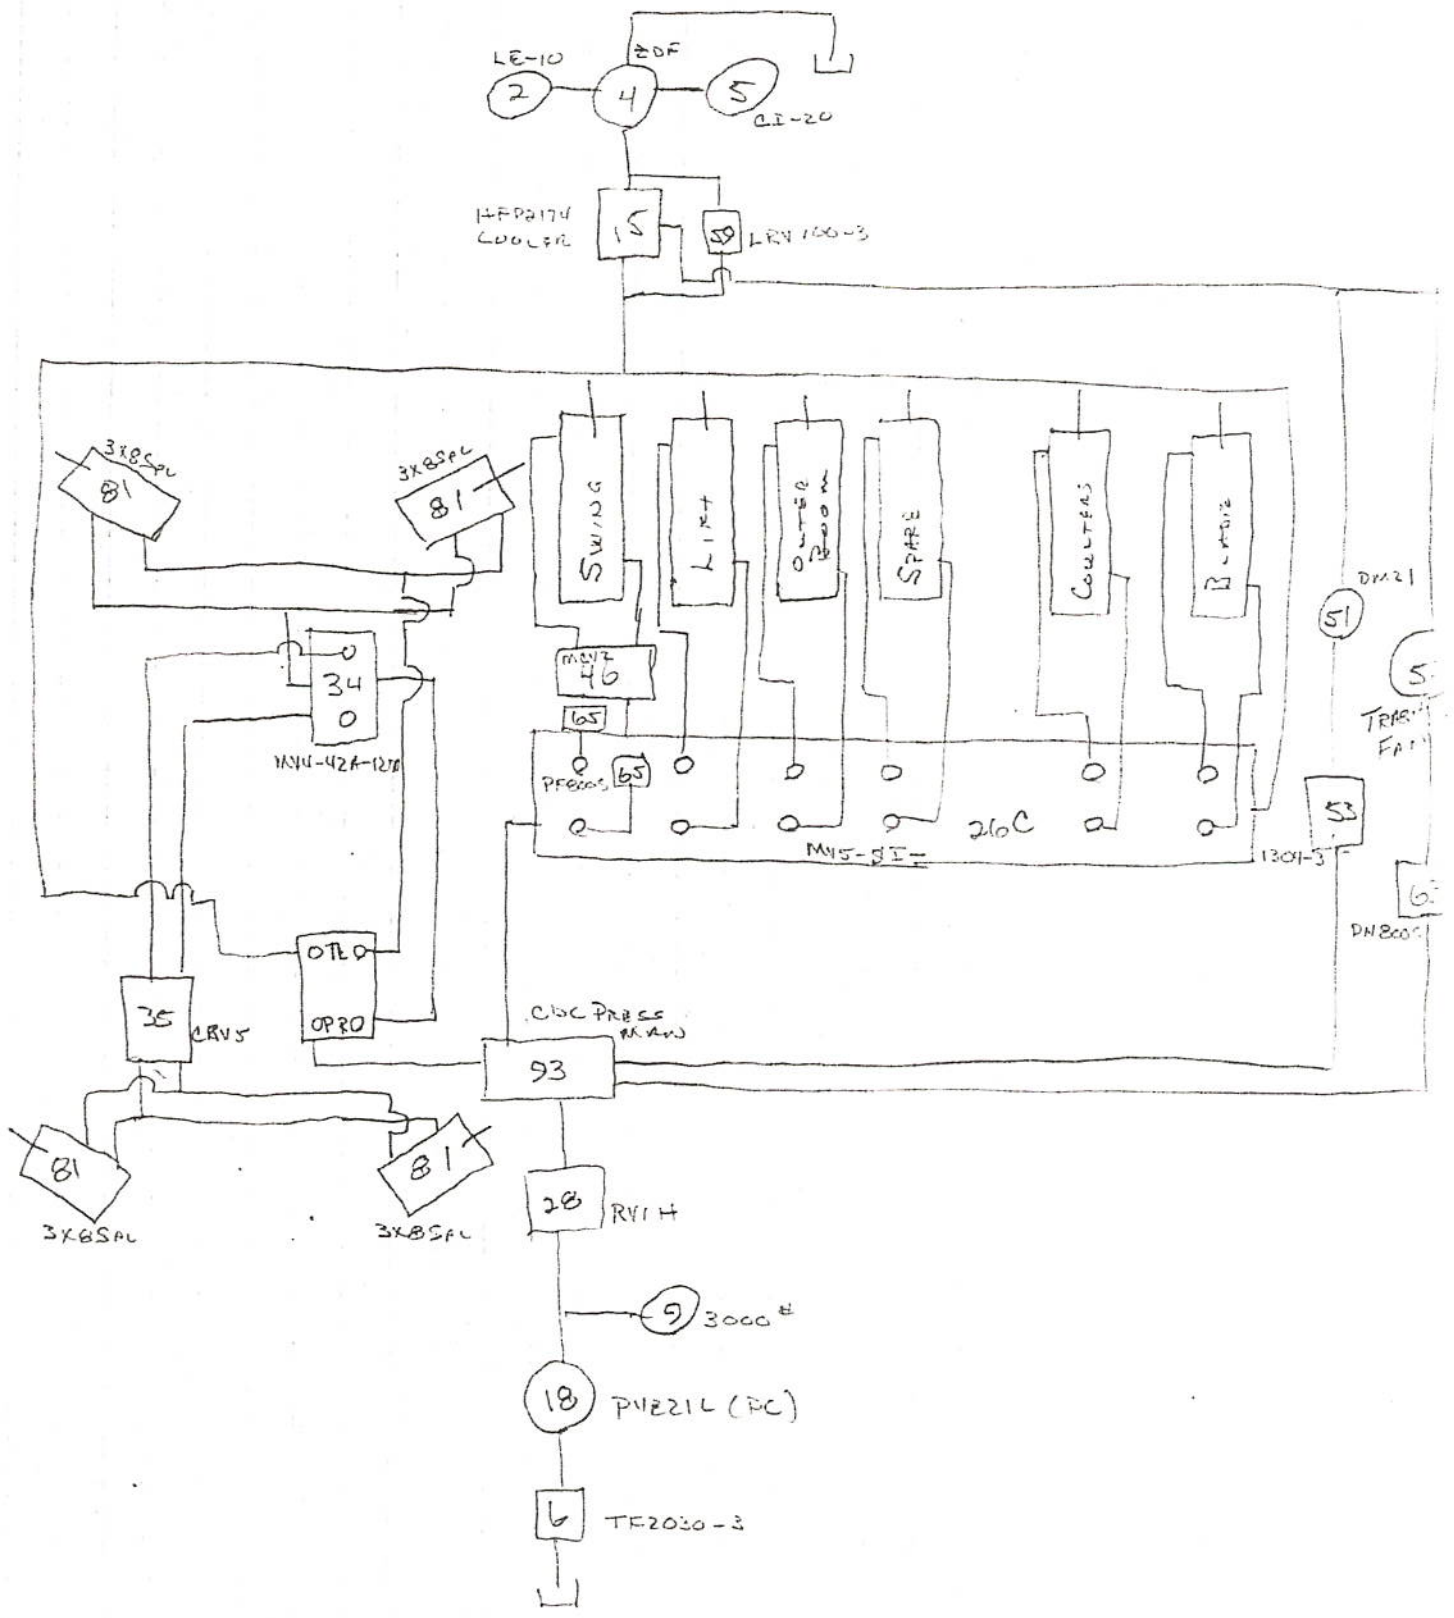 LE-10
ZDF
2
4
5
CI-20
HFP2174
COOLER
15
59
LRV100-3
3X8SPL
81
3X8SPL
81
SWING
LIFT
OUTER
BOOM
SPARE
COULTERS
BLADE
DM21
51
MCV2
46
34
65
MV4-42A-12
PF800S
65
26C
MV5-8I
53
1304-3
DN800S
35
CBV5
CDC PRESS
93
81
3X8SPL
81
3X8SPL
28
RV1H
9
3000#
18
PVE21L (PC)
6
TF2030-3